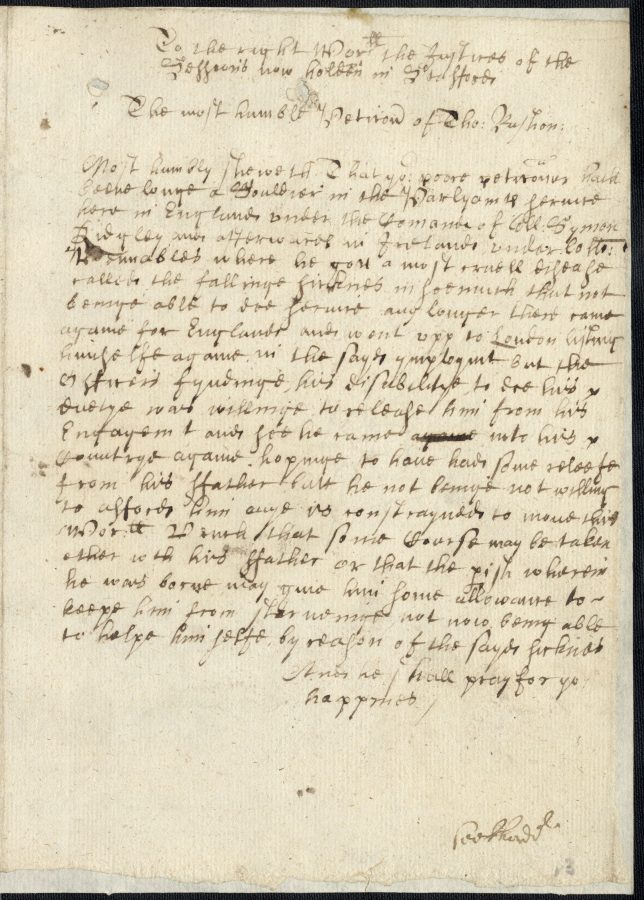 To the right Wor:ll the Justices of the
Sessions now holden in Stafford
The most humble Peticon of Tho: Rushton:
Most humbly sheweth That yor: poore peticoner hath
beene longe a Souldier in the Parlyamts service
here in England under the Comand of Coll: Symon
Ridgley and afterwards in Ireland under Collo:
Vennables where he gott a most cruell disease
called the fallinge sicknes in soemuch that not
beinge able to doe service any longer there came
agame for England and went upp to London listing
himselfe agame in the sayd ymploymt but the
Officers fyndinge his disabilitye to doe his
duetye was willinge to release him from his
Engagemt and soe he came into his
Countrye agame hopinge to have had some releefe
from his ffather butt he not beinge not willing
to afford him anye is constrayned to move this
Wor:ll Bench that some Course may be taken
ether wth his ffather or that the pish wherein
he was borne may give him some allowance to
keepe him from stervenge not now being able
to helpe himselfe by reason of the sayd sicknes
And he shall pray for yor
happines /
13